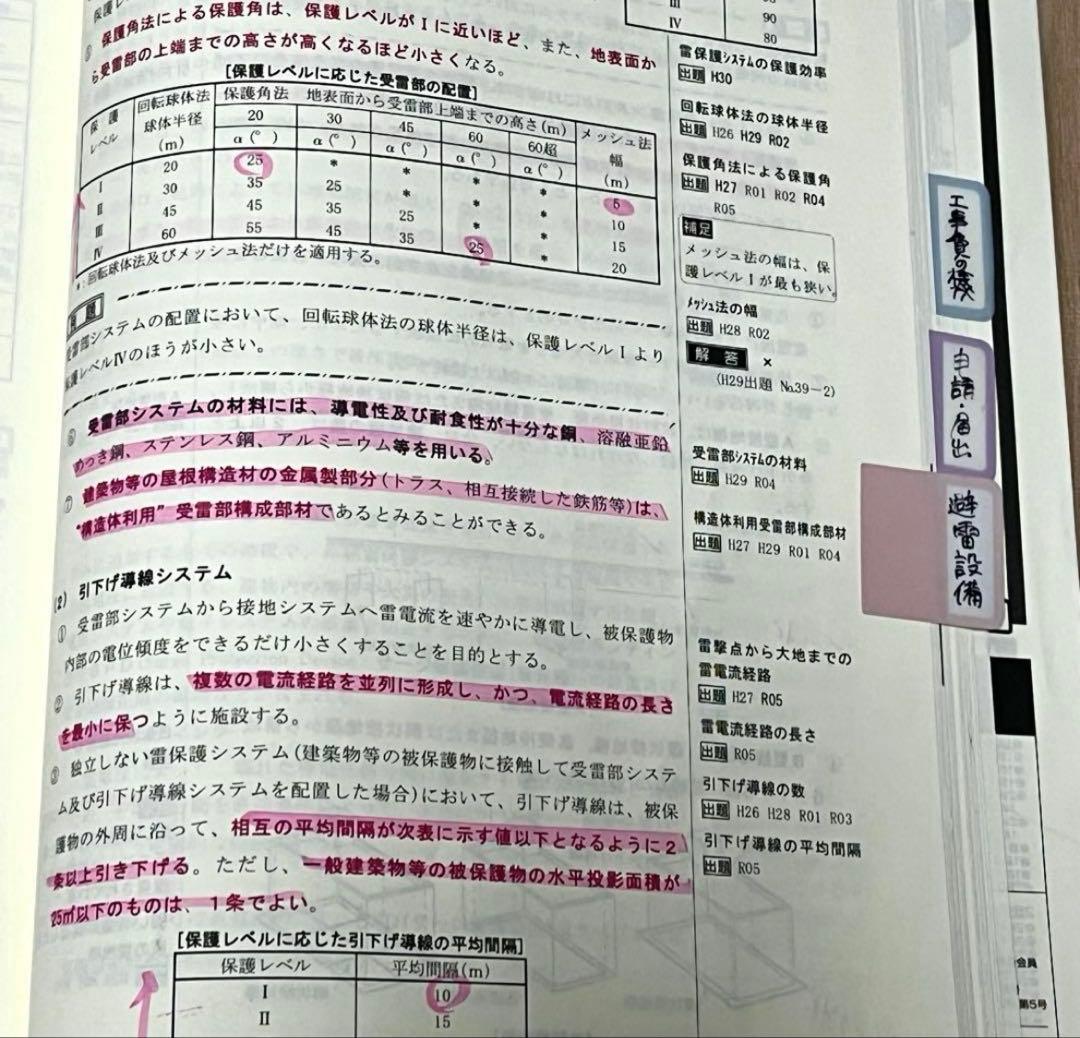 保護レ
⑤ 保護角法による保護角は、保護レベルがⅠに近いほど、また、地表面か
ら受雷部の上端までの高さが高くなるほど小さくなる。
[保護レベルに応じた受雷部の配置]
保護レベル 回転球体法 球体半径(m) 保護角法 地表面から受雷部上端までの高さ(m) メッシュ法 幅(m)
20 30 45 60 60超
α(°) α(°) α(°) α(°) α(°)
Ⅰ 20 25 * * * * 5
Ⅱ 30 35 25 * * * 10
Ⅲ 45 45 35 25 * * 15
Ⅳ 60 55 45 35 25 * 20
*:回転球体法及びメッシュ法だけを適用する。
題
受雷部システムの配置において、回転球体法の球体半径は、保護レベルⅠより
保護レベルⅣのほうが小さい。
⑥ 受雷部システムの材料には、導電性及び耐食性が十分な銅、溶融亜鉛
めっき鋼、ステンレス鋼、アルミニウム等を用いる。
⑦ 建築物等の屋根構造材の金属製部分(トラス、相互接続した鉄筋等)は、
“構造体利用”受雷部構成部材であるとみることができる。
(2) 引下げ導線システム
① 受雷部システムから接地システムへ雷電流を速やかに導電し、被保護物
内部の電位傾度をできるだけ小さくすることを目的とする。
② 引下げ導線は、複数の電流経路を並列に形成し、かつ、電流経路の長さ
を最小に保つように施設する。
③ 独立しない雷保護システム(建築物等の被保護物に接触して受雷部システ
ム及び引下げ導線システムを配置した場合)において、引下げ導線は、被保
護物の外周に沿って、相互の平均間隔が次表に示す値以下となるように2
条以上引き下げる。ただし、一般建築物等の被保護物の水平投影面積が
25㎡以下のものは、1条でよい。
[保護レベルに応じた引下げ導線の平均間隔]
保護レベル 平均間隔(m)
Ⅰ 10
Ⅱ 15
Ⅲ 90
Ⅳ 80
雷保護システムの保護効率
出題 H30
回転球体法の球体半径
出題 H26 H29 R02
保護角法による保護角
出題 H27 R01 R02 R04
R05
補足
メッシュ法の幅は、保
護レベルⅠが最も狭い。
メッシュ法の幅
出題 H28 R02
解答 ×
(H29出題 No.39-2)
受雷部システムの材料
出題 H29 R04
構造体利用受雷部構成部材
出題 H27 H29 R01 R04
雷撃点から大地までの
雷電流経路
出題 H27 R05
雷電流経路の長さ
出題 R05
引下げ導線の数
出題 H26 H28 R01 R03
引下げ導線の平均間隔
出題 R05
工事費の積
申請・届出
避雷設備
会員
第5号